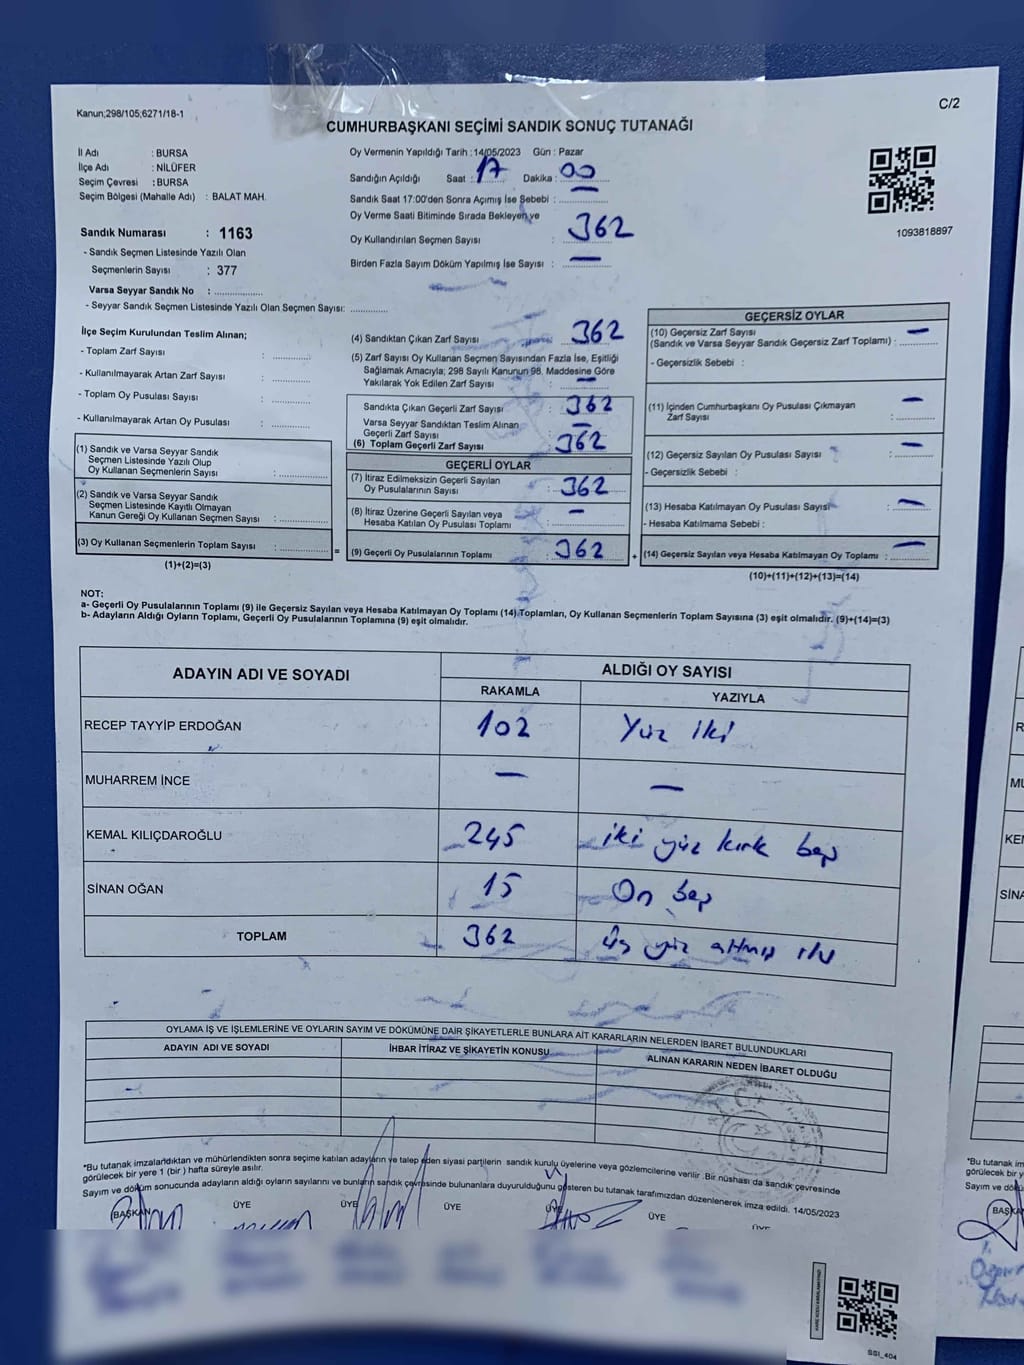 Kanun;298/105;6271/18-1
C/2
CUMHURBAŞKANI SEÇİMİ SANDIK SONUÇ TUTANAĞI
İl Adı : BURSA
İlçe Adı : NİLÜFER
Seçim Çevresi : BURSA
Seçim Bölgesi (Mahalle Adı) : BALAT MAH.
Sandık Numarası : 1163
- Sandık Seçmen Listesinde Yazılı Olan
Seçmenlerin Sayısı : 377
Varsa Seyyar Sandık No : ..............
- Seyyar Sandık Seçmen Listesinde Yazılı Olan Seçmen Sayısı: ............
Oy Vermenin Yapıldığı Tarih : 14/05/2023 Gün : Pazar
Sandığın Açıldığı Saat : 17 Dakika : 00
Sandık Saat 17:00'den Sonra Açımış İse Sebebi : —
Oy Verme Saati Bitiminde Sırada Bekleyen ve
Oy Kullandırılan Seçmen Sayısı : 362
Birden Fazla Sayım Döküm Yapılmış İse Sayısı : —
1093818897
İlçe Seçim Kurulundan Teslim Alınan;
- Toplam Zarf Sayısı : ............
- Kullanılmayarak Artan Zarf Sayısı : ............
- Toplam Oy Pusulası Sayısı : ............
- Kullanılmayarak Artan Oy Pusulası : ............
(1) Sandık ve Varsa Seyyar Sandık
Seçmen Listesinde Yazılı Olup
Oy Kullanan Seçmenlerin Sayısı : ............
(2) Sandık ve Varsa Seyyar Sandık
Seçmen Listesinde Kayıtlı Olmayan
Kanun Gereği Oy Kullanan Seçmen Sayısı : ............
(3) Oy Kullanan Seçmenlerin Toplam Sayısı : ............
(1)+(2)=(3)
(4) Sandıktan Çıkan Zarf Sayısı : 362
(5) Zarf Sayısı Oy Kullanan Seçmen Sayısından Fazla İse, Eşitliği
Sağlamak Amacıyla; 298 Sayılı Kanunun 98. Maddesine Göre
Yakılarak Yok Edilen Zarf Sayısı : —
Sandıkta Çıkan Geçerli Zarf Sayısı : 362
Varsa Seyyar Sandıktan Teslim Alınan
Geçerli Zarf Sayısı : —
(6) Toplam Geçerli Zarf Sayısı : 362
GEÇERLİ OYLAR
(7) İtiraz Edilmeksizin Geçerli Sayılan
Oy Pusulalarının Sayısı : 362
(8) İtiraz Üzerine Geçerli Sayılan veya
Hesaba Katılan Oy Pusulası Toplamı : —
= (9) Geçerli Oy Pusulalarının Toplamı : 362
GEÇERSİZ OYLAR
(10) Geçersiz Zarf Sayısı
(Sandık ve Varsa Seyyar Sandık Geçersiz Zarf Toplamı) : —
- Geçersizlik Sebebi :
(11) İçinden Cumhurbaşkanı Oy Pusulası Çıkmayan
Zarf Sayısı : —
(12) Geçersiz Sayılan Oy Pusulası Sayısı : —
- Geçersizlik Sebebi :
(13) Hesaba Katılmayan Oy Pusulası Sayısı : —
- Hesaba Katılmama Sebebi :
+ (14) Geçersiz Sayılan veya Hesaba Katılmayan Oy Toplamı : —
(10)+(11)+(12)+(13)=(14)
NOT:
a- Geçerli Oy Pusulalarının Toplamı (9) ile Geçersiz Sayılan veya Hesaba Katılmayan Oy Toplamı (14) Toplamları, Oy Kullanan Seçmenlerin Toplam Sayısına (3) eşit olmalıdır. (9)+(14)=(3)
b- Adayların Aldığı Oyların Toplamı, Geçerli Oy Pusulalarının Toplamına (9) eşit olmalıdır.
ADAYIN ADI VE SOYADI ALDIĞI OY SAYISI
RAKAMLA YAZIYLA
RECEP TAYYİP ERDOĞAN 102 Yüz iki
MUHARREM İNCE — —
KEMAL KILIÇDAROĞLU 245 iki yüz kırk beş
SİNAN OĞAN 15 On beş
TOPLAM 362 Üç yüz altmış iki
OYLAMA İŞ VE İŞLEMLERİNE VE OYLARIN SAYIM VE DÖKÜMÜNE DAİR ŞİKAYETLERLE BUNLARA AİT KARARLARIN NELERDEN İBARET BULUNDUKLARI
ADAYIN ADI VE SOYADI İHBAR İTİRAZ VE ŞİKAYETİN KONUSU ALINAN KARARIN NEDEN İBARET OLDUĞU
*Bu tutanak imzalandıktan ve mühürlendikten sonra seçime katılan adayların ve talep eden siyasi partilerin sandık kurulu üyelerine veya gözlemcilerine verilir .Bir nüshası da sandık çevresinde
görülecek bir yere 1 (bir ) hafta süreyle asılır.
Sayım ve döküm sonucunda adayların aldığı oyların sayılarını ve bunların sandık çevresinde bulunanlara duyurulduğunu gösteren bu tutanak tarafımızdan düzenlenerek imza edildi. 14/05/2023
BAŞKAN ÜYE ÜYE ÜYE ÜYE ÜYE ÜYE
SSI_404
R
MU
KE
SİNA
*Bu tutanak im
görülecek bir ye
Sayım ve dök
BAŞKA